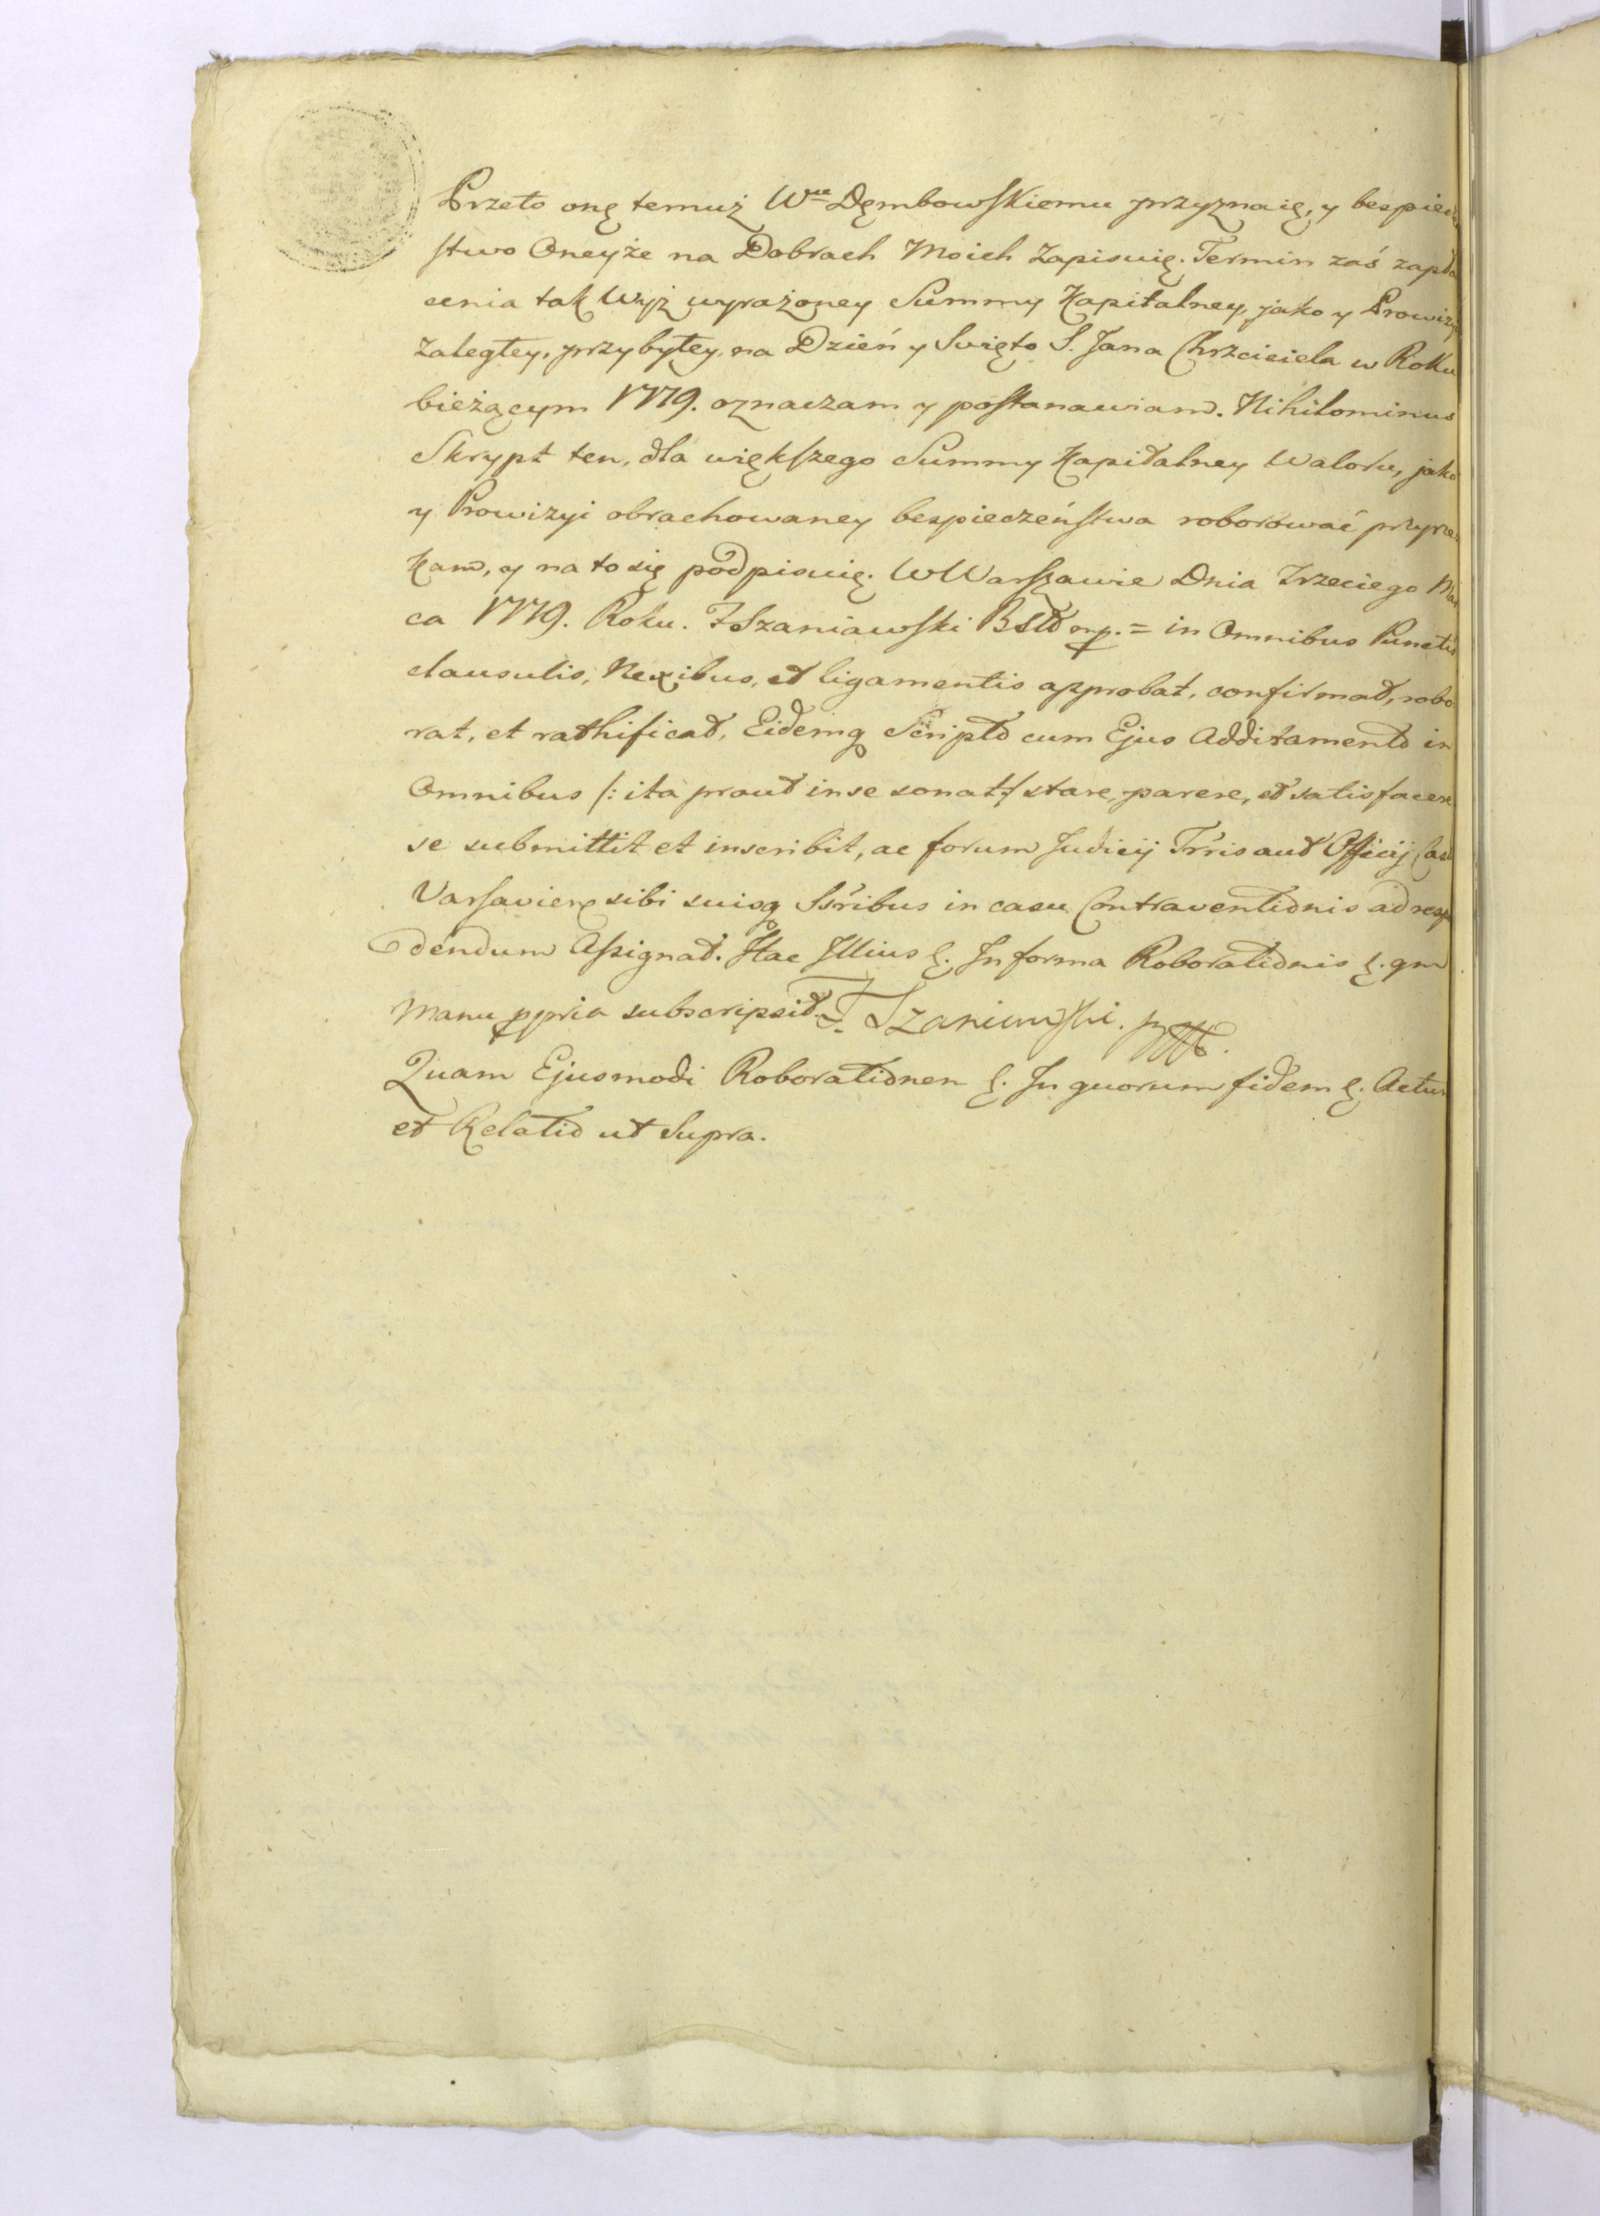 Przeto onę temuż Wmu Dęmbowskiemu przyznaię, y bespiecz
stwo Oneyże na Dobrach Moich Zapisuię. Termin zaś zapła
cenia tak Wyż wyrażoney Summy Kapitalney, jako y Prowizyi
Zaległey, przybyłey, na Dzień y Swięto S. Jana Chrzciciela w Roku
bieżącym 1779. oznaczam y postanawiam. Nihilominus
Skrypt ten, dla większego Summy Kapitalney Waloru, jako
y Prowizyi obrachowaney bespieczeństwa roborować przyrze
kam, y na to się podpisuię. W Warszawie Dnia Trzeciego Mar
ca 1779. Roku. F Szaniawski mp. = in Omnibus Punctis
clausulis, Nexibus, et ligamentis approbat, confirmat, robo
rat, et rathificat, Eidemq Scripto cum Ejus Additamento in
Omnibus /: ita prout in se sonat :/ stare, parere, et satisfacere
se submittit et inscribit, ac forum Judicij Trris aut Officij Cas
Varsavien sibi suisq Ssribus in casu Contraventionis ad respo
dendum Assignat. Hac Illius &. In forma Roborationis &. qm
Manu ppria subscripsit. F. Szaniawski. mp.
Quam Ejusmodi Roborationen &. In quorum fidem &. Actum
et Relatio ut Supra.